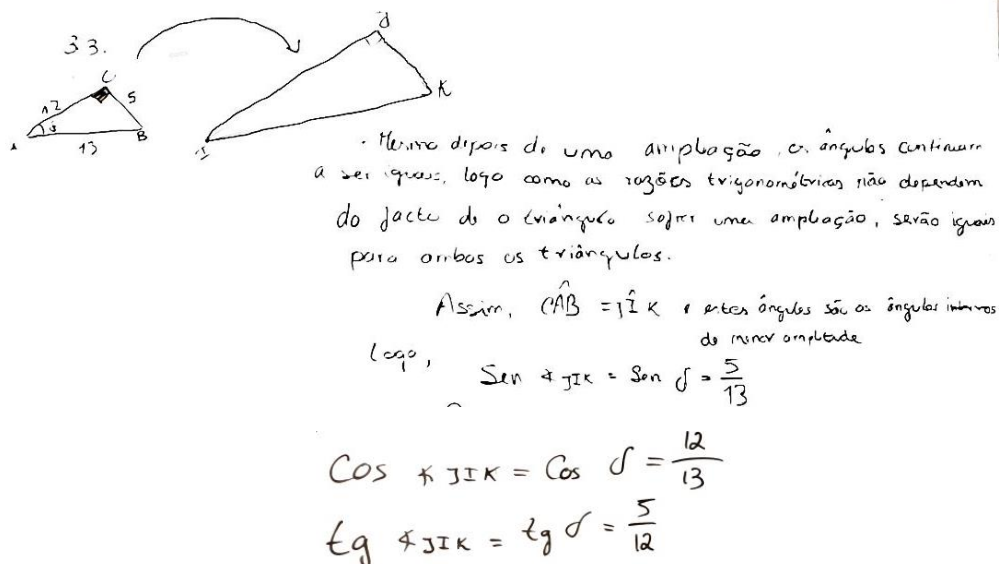 33.
C
12
5
A
B
13
J
K
I
· Mesmo depois de uma ampliação, os ângulos continuam
a ser iguais, logo como as razões trigonométricas não dependem
do facto de o triângulo sofrer uma ampliação, serão iguais
para ambos os triângulos.
Assim, CÂB = JÎK e estes ângulos são os ângulos internos
de menor amplitude
logo,
Sen ∡ JIK = Sen δ = 5/13
Cos ∡ JIK = Cos δ = 12/13
tg ∡ JIK = tg δ = 5/12